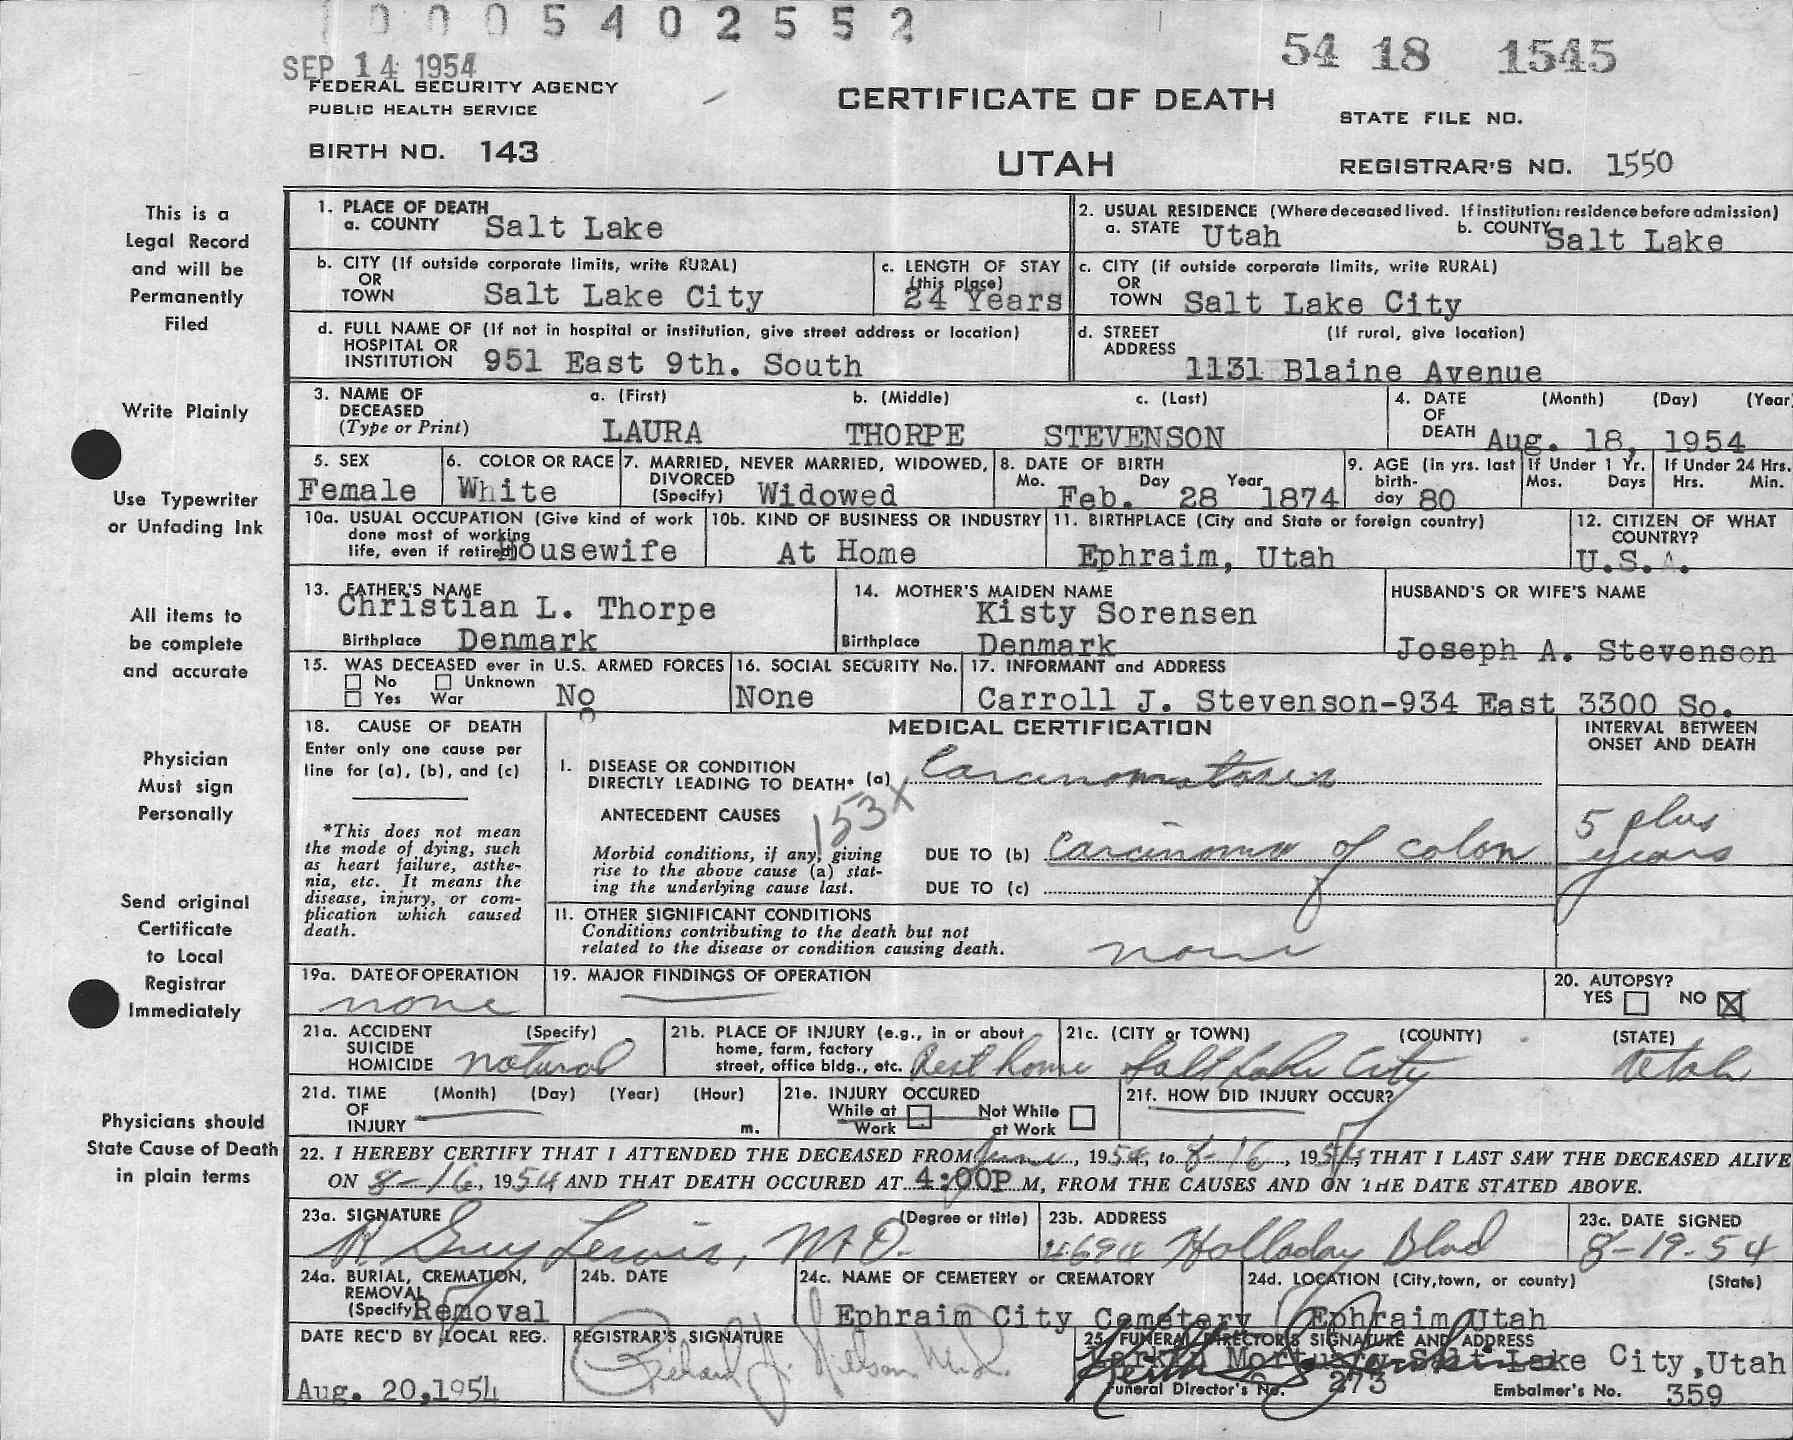 0 0 0 5 4 0 2 5 5 2
SEP 14 1954
54 18 1545
FEDERAL SECURITY AGENCY
PUBLIC HEALTH SERVICE
CERTIFICATE OF DEATH
STATE FILE NO.
BIRTH NO. 143
UTAH
REGISTRAR'S NO. 1550
This is a
Legal Record
and will be
Permanently
Filed
Write Plainly
Use Typewriter
or Unfading Ink
All items to
be complete
and accurate
Physician
Must sign
Personally
Send original
Certificate
to Local
Registrar
Immediately
Physicians should
State Cause of Death
in plain terms
1. PLACE OF DEATH
a. COUNTY Salt Lake
2. USUAL RESIDENCE (Where deceased lived. If institution: residence before admission)
a. STATE Utah b. COUNTY Salt Lake
b. CITY (If outside corporate limits, write RURAL)
OR
TOWN Salt Lake City
c. LENGTH OF STAY
(this place)
24 Years
c. CITY (if outside corporate limits, write RURAL)
OR
TOWN Salt Lake City
d. FULL NAME OF (If not in hospital or institution, give street address or location)
HOSPITAL OR
INSTITUTION 951 East 9th. South
d. STREET (If rural, give location)
ADDRESS
1131 Blaine Avenue
3. NAME OF a. (First) b. (Middle) c. (Last)
DECEASED
(Type or Print) LAURA THORPE STEVENSON
4. DATE (Month) (Day) (Year
OF
DEATH Aug. 18, 1954
5. SEX
Female
6. COLOR OR RACE
White
7. MARRIED, NEVER MARRIED, WIDOWED,
DIVORCED
(Specify) Widowed
8. DATE OF BIRTH
Mo. Day Year
Feb. 28 1874
9. AGE (In yrs. last
birth-
day 80
If Under 1 Yr.
Mos. Days
If Under 24 Hrs.
Hrs. Min.
10a. USUAL OCCUPATION (Give kind of work
done most of working
life, even if retired) Housewife
10b. KIND OF BUSINESS OR INDUSTRY
At Home
11. BIRTHPLACE (City and State or foreign country)
Ephraim, Utah
12. CITIZEN OF WHAT
COUNTRY?
U.S.A.
13. FATHER'S NAME
Christian L. Thorpe
Birthplace Denmark
14. MOTHER'S MAIDEN NAME
Kisty Sorensen
Birthplace Denmark
HUSBAND'S OR WIFE'S NAME
Joseph A. Stevenson
15. WAS DECEASED ever in U.S. ARMED FORCES
No Unknown
Yes War No
16. SOCIAL SECURITY No.
None
17. INFORMANT and ADDRESS
Carroll J. Stevenson-934 East 3300 So.
18. CAUSE OF DEATH
Enter only one cause per
line for (a), (b), and (c)
*This does not mean
the mode of dying, such
as heart failure, asthe-
nia, etc. It means the
disease, injury, or com-
plication which caused
death.
MEDICAL CERTIFICATION
INTERVAL BETWEEN
ONSET AND DEATH
I. DISEASE OR CONDITION
DIRECTLY LEADING TO DEATH* (a) Carcinomatosis
153X
ANTECEDENT CAUSES
Morbid conditions, if any, giving
rise to the above cause (a) stat-
ing the underlying cause last.
DUE TO (b) Carcinoma of colon
5 plus
years
DUE TO (c)
II. OTHER SIGNIFICANT CONDITIONS
Conditions contributing to the death but not
related to the disease or condition causing death.
none
19a. DATE OF OPERATION
none
19. MAJOR FINDINGS OF OPERATION
20. AUTOPSY?
YES NO
21a. ACCIDENT (Specify)
SUICIDE
HOMICIDE natural
21b. PLACE OF INJURY (e.g., in or about
home, farm, factory
street, office bldg., etc. Rest home
21c. (CITY or TOWN) (COUNTY) (STATE)
Salt Lake City Utah
21d. TIME (Month) (Day) (Year) (Hour)
OF
INJURY m.
21e. INJURY OCCURED
While at Not While
Work at Work
21f. HOW DID INJURY OCCUR?
22. I HEREBY CERTIFY THAT I ATTENDED THE DECEASED FROM June, 1954, to 8-16, 1954, THAT I LAST SAW THE DECEASED ALIVE
ON 8-16, 1954 AND THAT DEATH OCCURED AT 4:00P M, FROM THE CAUSES AND ON THE DATE STATED ABOVE.
23a. SIGNATURE (Degree or title)
R Guy Lewis, M.D.
23b. ADDRESS
Holladay Blvd
23c. DATE SIGNED
8-19-54
24a. BURIAL, CREMATION,
REMOVAL
(Specify Removal
24b. DATE
24c. NAME OF CEMETERY or CREMATORY
Ephraim City Cemetery
24d. LOCATION (City, town, or county) (State)
Ephraim Utah
DATE REC'D BY LOCAL REG.
Aug. 20,1954
REGISTRAR'S SIGNATURE
Richard J. Nielson
25. FUNERAL DIRECTOR'S SIGNATURE AND ADDRESS
Larkin Mortuary-Salt Lake City,Utah
Funeral Director's No. 273
Embalmer's No. 359